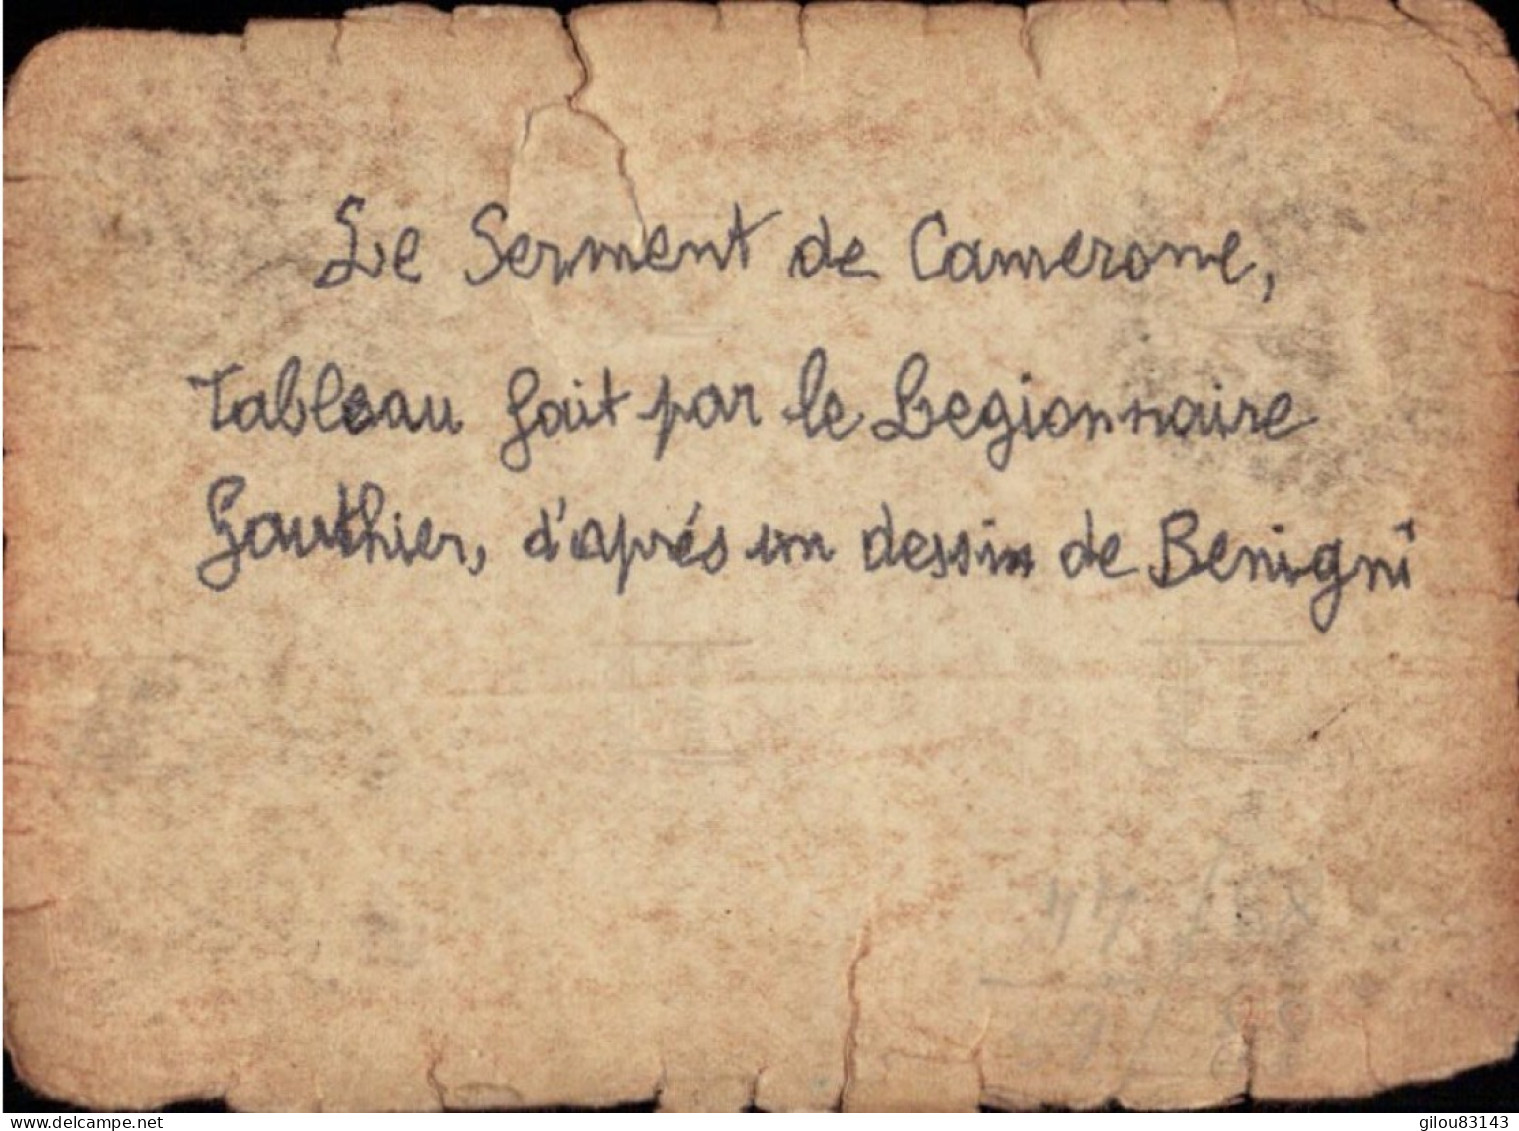 Le Serment de Camerone,
Tableau fait par le Legionnaire
Gauthier, d'aprés un dessin de Benigni
44
delcampe.net
gilou83143